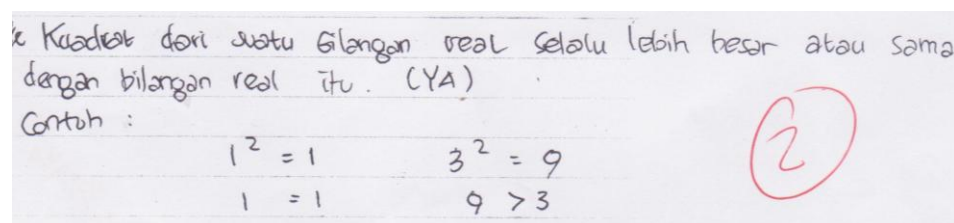 Kuadrat dari suatu bilangan real selalu lebih besar atau sama
dengan bilangan real itu. (YA)
Contoh :
1² = 1 3² = 9
1 = 1 9 > 3
2